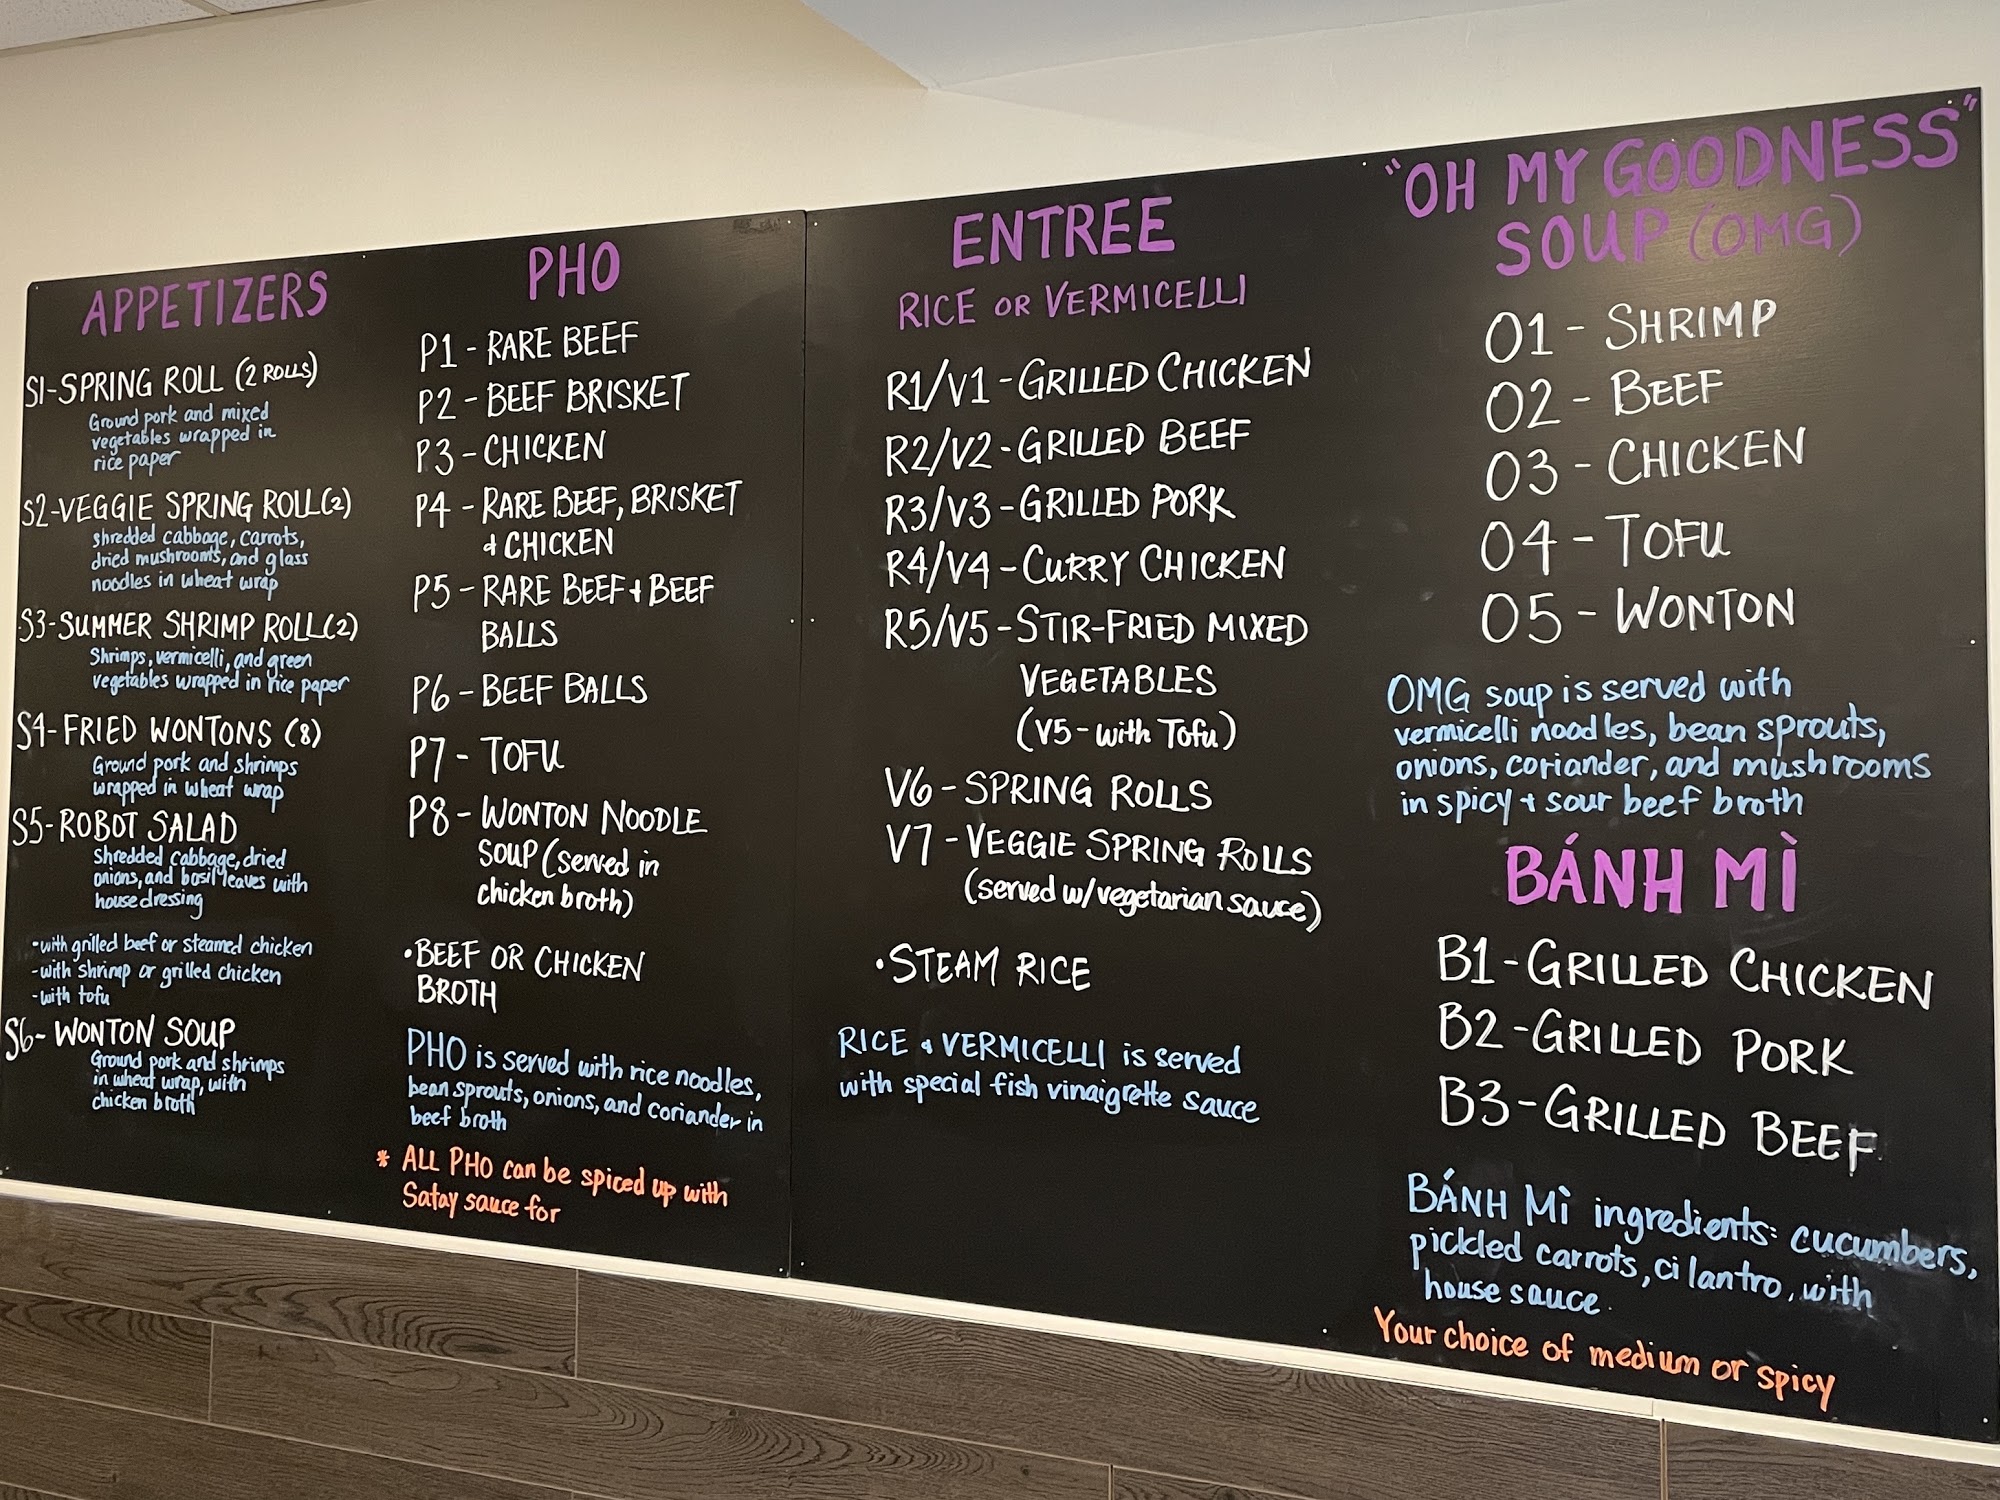 APPETIZERS
S1-SPRING ROLL (2 ROLLS)
Ground pork and mixed
vegetables wrapped in
rice paper
S2-VEGGIE SPRING ROLL(2)
shredded cabbage, carrots,
dried mushrooms, and glass
noodles in wheat wrap
S3-SUMMER SHRIMP ROLL(2)
Shrimps, vermicelli, and green
vegetables wrapped in rice paper
S4-FRIED WONTONS (8)
Ground pork and shrimps
wrapped in wheat wrap
S5-ROBOT SALAD
Shredded cabbage, dried
onions, and basil leaves with
house dressing
•with grilled beef or steamed chicken
-with shrimp or grilled chicken
-with tofu
S6-WONTON SOUP
Ground pork and shrimps
in wheat wrap, with
chicken broth
PHO
P1-RARE BEEF
P2-BEEF BRISKET
P3-CHICKEN
P4-RARE BEEF, BRISKET
& CHICKEN
P5-RARE BEEF + BEEF
BALLS
P6-BEEF BALLS
P7-TOFU
P8-WONTON NOODLE
SOUP (served in
chicken broth)
•BEEF OR CHICKEN
BROTH
PHO is served with rice noodles,
bean sprouts, onions, and coriander in
beef broth
* ALL PHO can be spiced up with
Satay sauce for
ENTREE
RICE OR VERMICELLI
R1/V1-GRILLED CHICKEN
R2/V2-GRILLED BEEF
R3/V3-GRILLED PORK
R4/V4-CURRY CHICKEN
R5/V5-STIR-FRIED MIXED
VEGETABLES
(V5-with Tofu)
V6-SPRING ROLLS
V7-VEGGIE SPRING ROLLS
(served w/vegetarian sauce)
•STEAM RICE
RICE & VERMICELLI is served
with special fish vinaigrette sauce
"OH MY GOODNESS"
SOUP (OMG)
O1-SHRIMP
O2-BEEF
O3-CHICKEN
O4-TOFU
O5-WONTON
OMG soup is served with
vermicelli noodles, bean sprouts,
onions, coriander, and mushrooms
in spicy + sour beef broth
BÁNH MÌ
B1-GRILLED CHICKEN
B2-GRILLED PORK
B3-GRILLED BEEF
BÁNH MÌ ingredients: cucumbers,
pickled carrots, cilantro, with
house sauce.
Your choice of medium or spicy